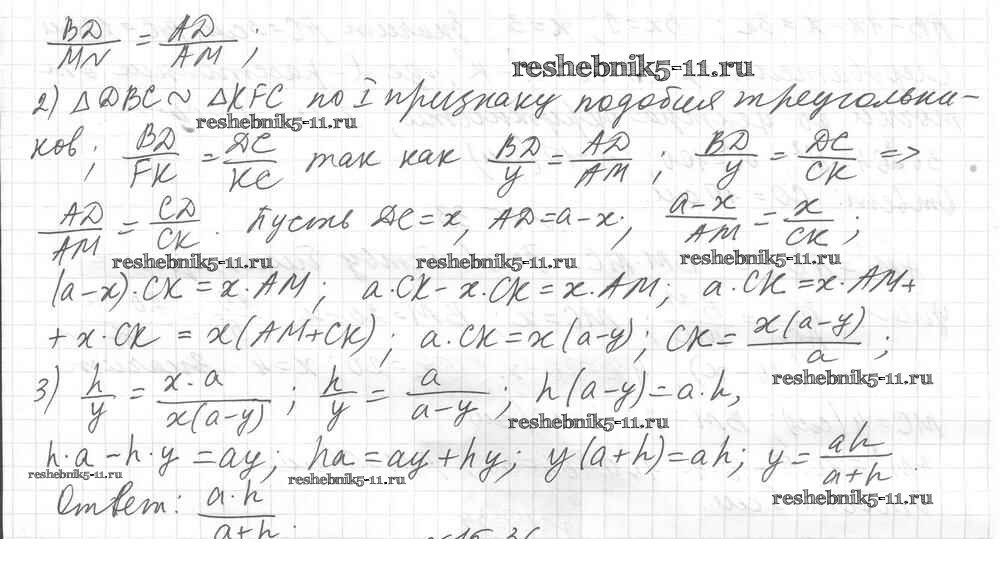 BD/MN = AD/AM ;
reshebnik5-11.ru
2) △DBC ~ △KFC по I признаку подобия треугольни-
reshebnik5-11.ru
ков; BD/FK = DC/KC так как BD/y = AD/AM ; BD/y = DC/CK =>
AD/AM = CD/CK . Пусть DC = x, AD = a-x; (a-x)/AM = x/CK ;
reshebnik5-11.ru reshebnik5-11.ru reshebnik5-11.ru
(a-x)·CK = x·AM; a·CK - x·CK = x·AM; a·CK = x·AM+
+ x·CK = x(AM+CK); a·CK = x(a-y); CK = x(a-y)/a ;
reshebnik5-11.ru
3) h/y = x·a/x(a-y) ; h/y = a/(a-y) ; h(a-y) = a·h,
reshebnik5-11.ru
h·a - h·y = ay; ha = ay + hy; y(a+h) = ah; y = ah/(a+h) .
reshebnik5-11.ru reshebnik5-11.ru reshebnik5-11.ru
Ответ: a·h/(a+h) .